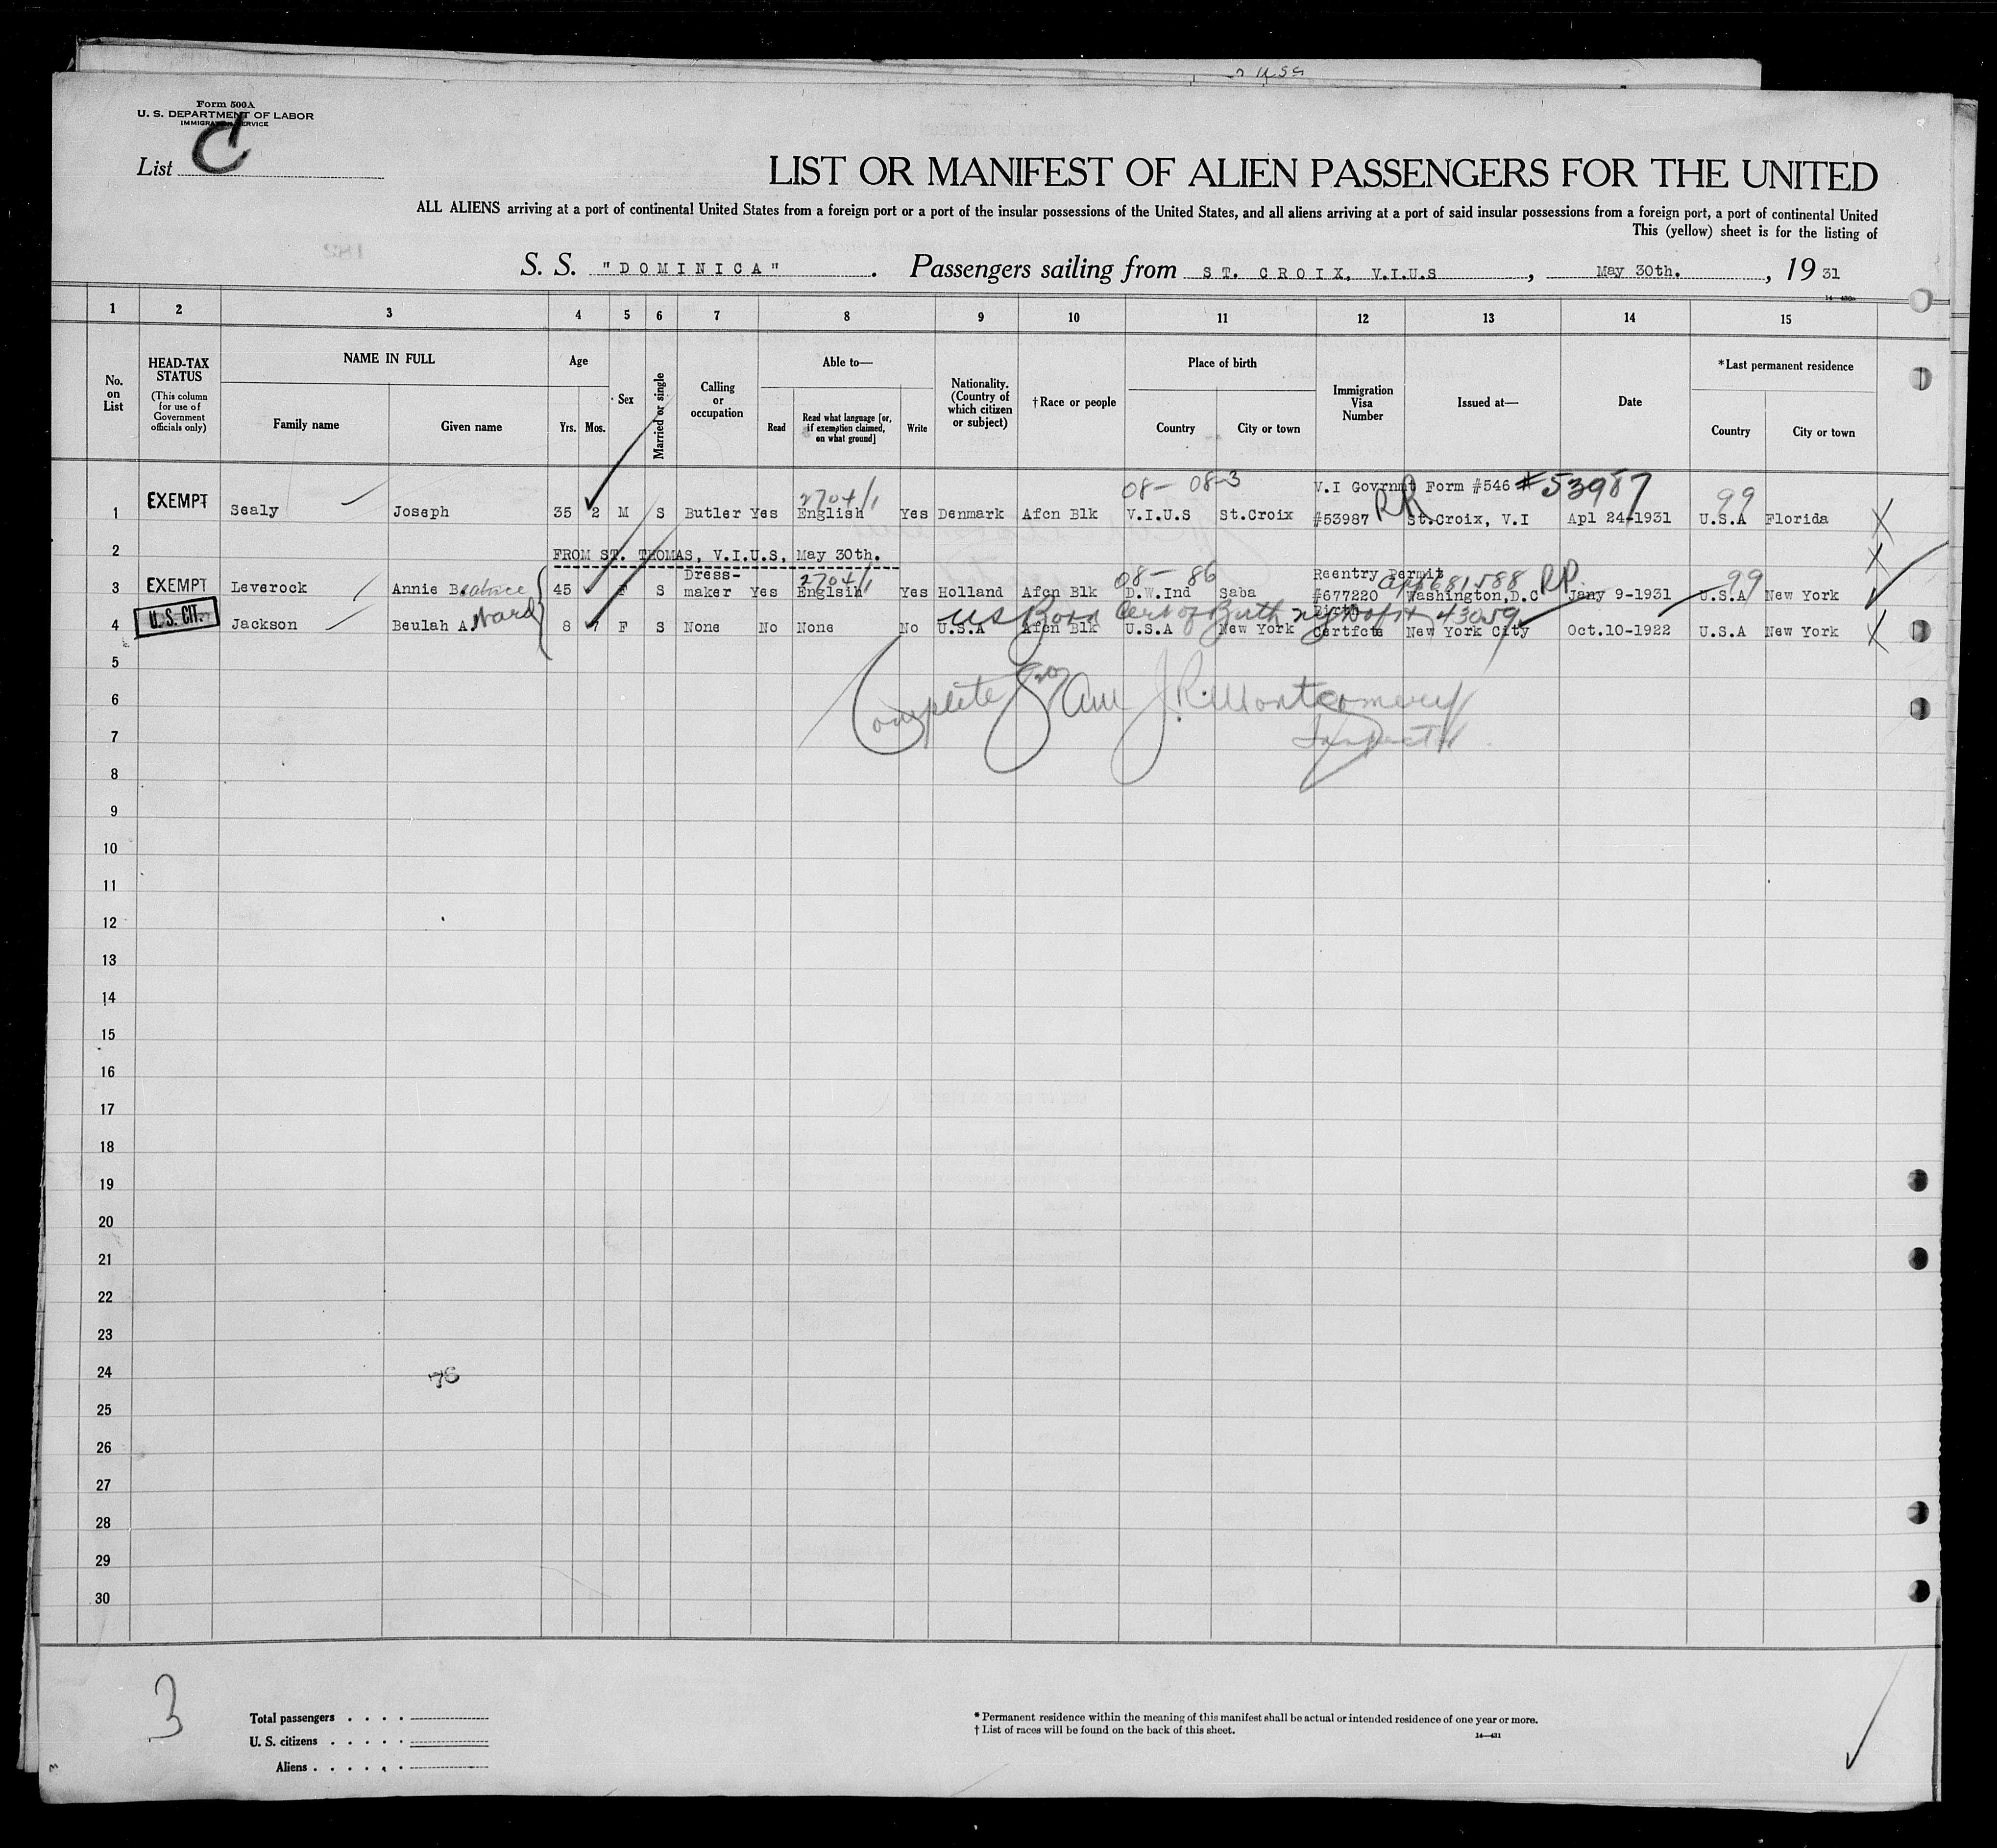 Form 500A
U. S. DEPARTMENT OF LABOR
IMMIGRATION SERVICE
List C
LIST OR MANIFEST OF ALIEN PASSENGERS FOR THE UNITED
ALL ALIENS arriving at a port of continental United States from a foreign port or a port of the insular possessions of the United States, and all aliens arriving at a port of said insular possessions from a foreign port, a port of continental United
This (yellow) sheet is for the listing of
S. S. "DOMINICA" . Passengers sailing from ST. CROIX, V.I.U.S , May 30th. , 19 31
1 2 3 4 5 6 7 8 9 10 11 12 13 14 15
No. on List
HEAD-TAX STATUS (This column for use of Government officials only)
NAME IN FULL Family name Given name
Age Yrs. Mos.
Sex
Married or single
Calling or occupation
Able to— Read Read what language [or, if exemption claimed, on what ground] Write
Nationality. (Country of which citizen or subject)
†Race or people
Place of birth Country City or town
Immigration Visa Number
Issued at—
Date
*Last permanent residence Country City or town
2704/1 08- 08-3 V.I Govrnmt Form #546 #53987 99
1 EXEMPT Sealy Joseph 35 2 M S Butler Yes English Yes Denmark Afcn Blk V.I.U.S St.Croix #53987 RR St.Croix, V.I Apl 24-1931 U.S.A Florida X
2 FROM ST. THOMAS, V.I.U.S, May 30th. X
Dress- 2704/1 08 - 86 Reentry Permit 681588 RP 99
3 EXEMPT Leverock Annie Beatrice 45 F S maker Yes Englsih Yes Holland Afcn Blk D.W.Ind Saba #677220 Washington,D.C Jany 9-1931 U.S.A New York
US Born Cert of Birth 43059 Birth
4 U.S. CIT. Jackson Beulah A. Ward 8 7 F S None No None No U.S.A Afcn Blk U.S.A New York Certfcte New York City Oct.10-1922 U.S.A New York X
5
Complete J.R. Montgomery
6
Inspector
7
8
9
10
11
12
13
14
15
16
17
18
19
20
21
22
23
24 76
25
26
27
28
29
30
3
Total passengers
U. S. citizens
Aliens
* Permanent residence within the meaning of this manifest shall be actual or intended residence of one year or more.
† List of races will be found on the back of this sheet.
14—431